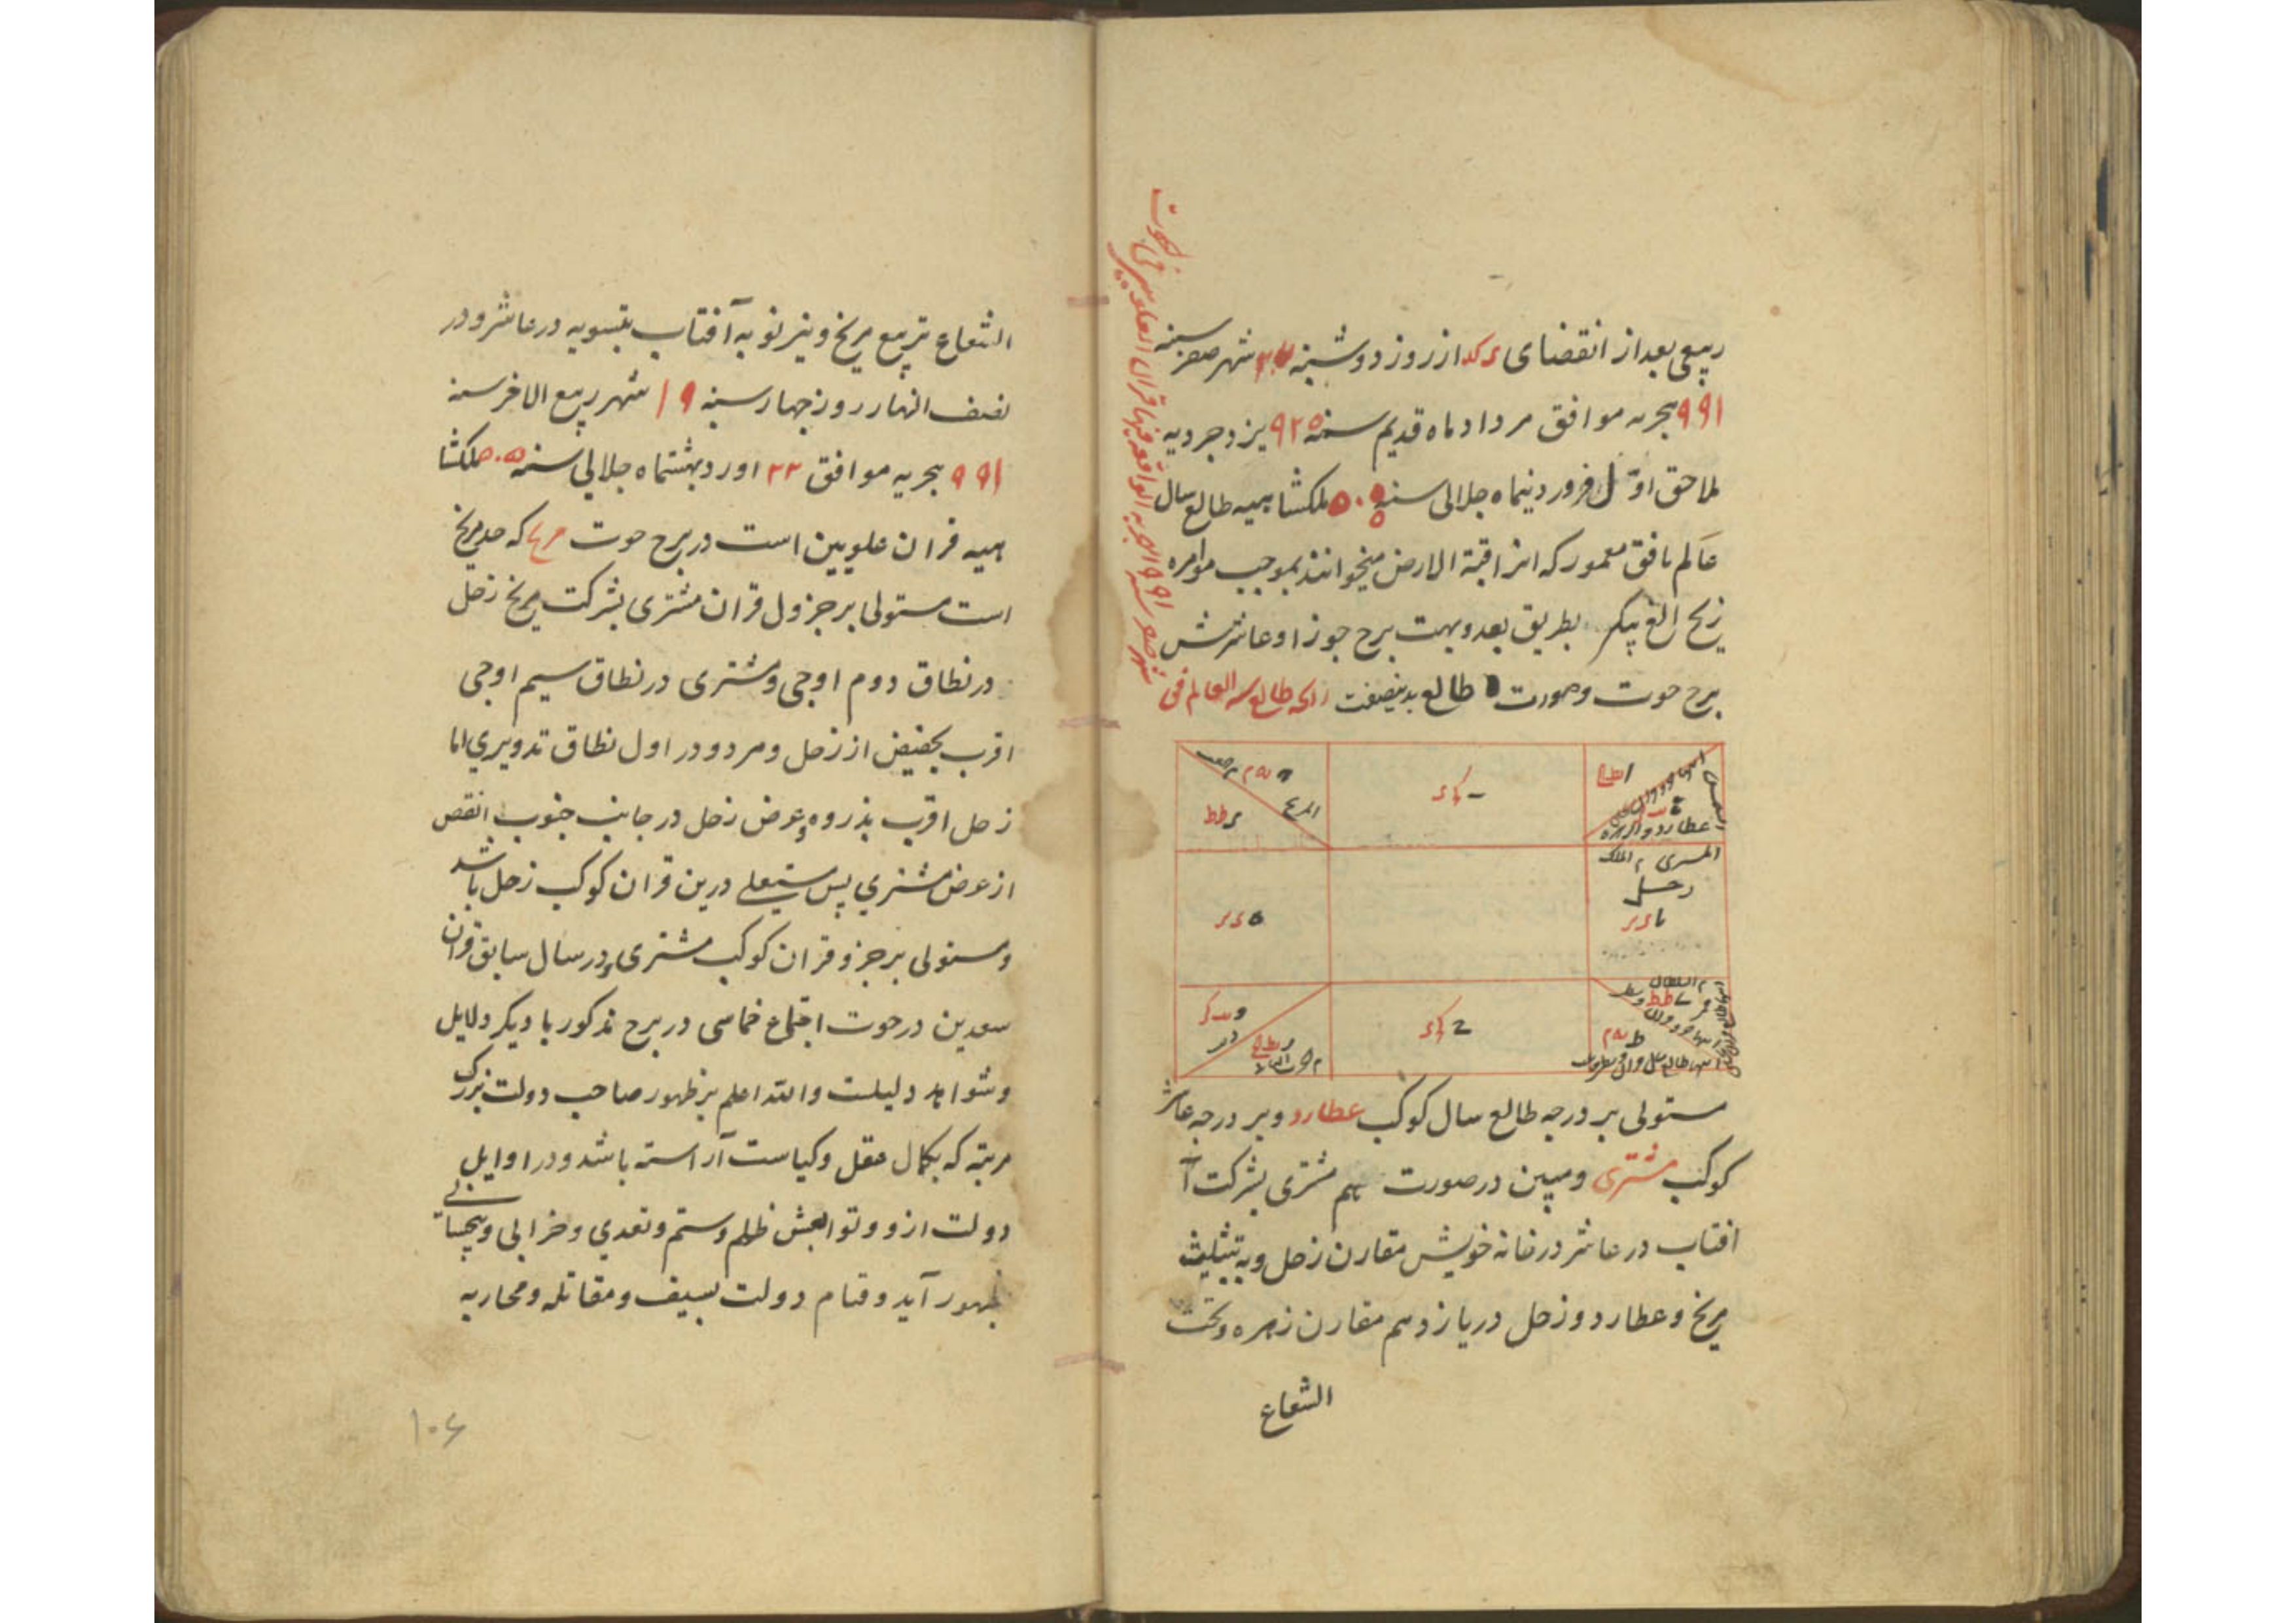 ربیعی بعد از انقضای از روز دوشنبه شهر صفر سنه
۹۹۱ هجریه موافق مرداد ماه قدیم سنه ۹۲۵ یزدجردیه
لاحق اول فروردینماه جلالی سنه ۵۰۵ ملکشاهیه طالع سال
عالم بافق معمور که انرا قبة الارض میخوانند بموجب موامره
زیج الغ بیکی بطریق بعد وبهت برج جوزا وعاشرش
برج حوت وصورت طالع بدینصفت طالع سنه العالم فی
شهر صفر سنه ۹۹۱ الهجریه الواقعه فیها قران العلویین فی الحوت
المریخ
عطارد والزهره
المشتری
زحل
مستولی بر درجه طالع سال کوکب عطارد وبر درجه عاشر
کوکب مشتری ومبین درصورت هم مشتری بشرکت
افتاب در عاشر در خانه خویش مقارن زحل وبه تثلیث
مریخ وعطارد وزحل دریازدهم مقارن زهره وتحت
الشعاع
الشعاع تربیع مریخ ونیز نو به آفتاب بتسویه در عاشر ودر
نصف النهار روز چهارسنبه ۱۹ شهر ربیع الاخر سنه
۹۹۱ هجریه موافق ۲۲ اوردبهشتماه جلالی سنه ۵۰۵ ملکشا
هیه قران علویین است در برج حوت که حد مریخ
است مستولی بر جزول قران مشتری بشرکت مریخ زحل
در نطاق دوم اوجی ومشتری در نطاق سیم اوجی
اقرب بحضیض از زحل ومردو در اول نطاق تدویری اما
زحل اقرب بذروه وعرض زحل در جانب جنوب انقص
از عرض مشتری پس مستعلی درین قران کوکب زحل باشد
ومستولی بر جزو قران کوکب مشتری ودر سال سابق قران
سعدین در حوت اجتماع خماسی در برج مذکور با دیکر دلایل
وشواهد دلیلست والله اعلم بر ظهور صاحب دولت بزرک
مرتبه که بکمال عقل وکیاست آراسته باشد ودر اوایل
دولت ازو وتوابعش ظلم وستم وتعدی وخرابی وبیحسابی
بظهور آید وقیام دولت بسیف ومقاتله ومحاربه
۱۰۶